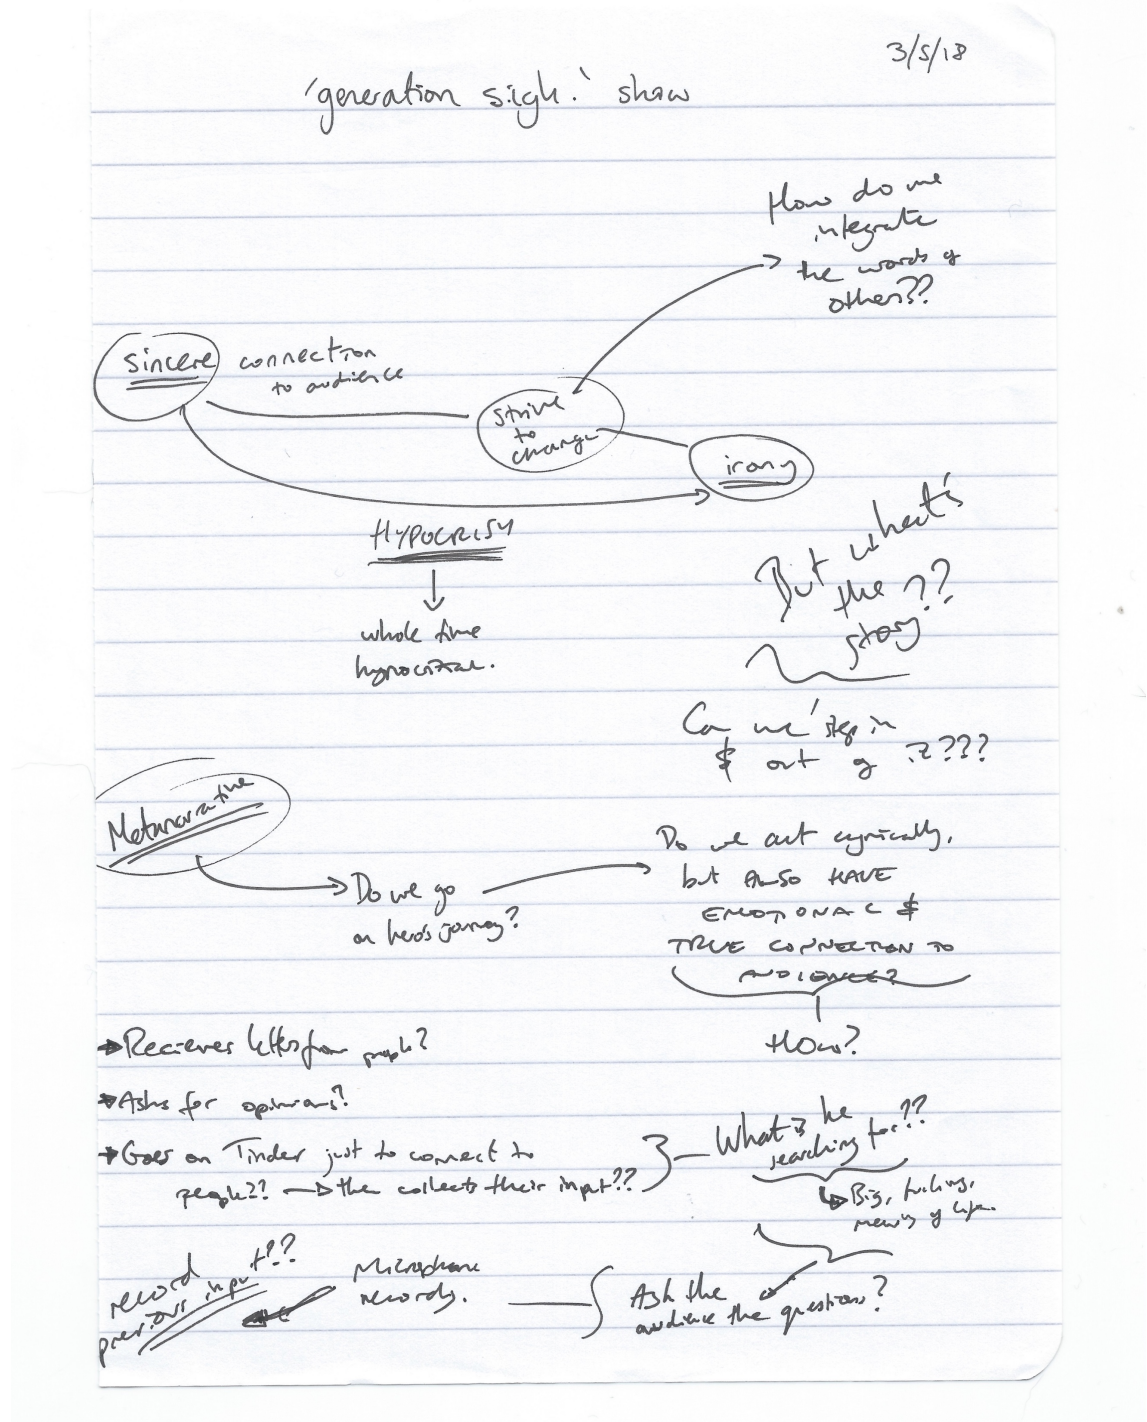 3/5/18
'generation sigh.' show
How do we
integrate
the words of
others??
sincere
connection
to audience
strive
to
change
irony
HYPOCRISY
whole time
hypocritical.
But what's
the ??
story
Can we step in
& out of it???
Metanarrative
Do we go
on hero's journey?
Do we act cynically,
but ALSO HAVE
EMOTIONAL &
TRUE CONNECTION TO
AUDIENCE?
How?
→Recieves letters from people?
→Asks for opinions?
→Goes on Tinder just to connect to
people?? → the collects their input??
What is he
searching for??
Big, fucking,
meaning of life.
Ask the
audience the questions?
Microphone
records.
record
previous input??